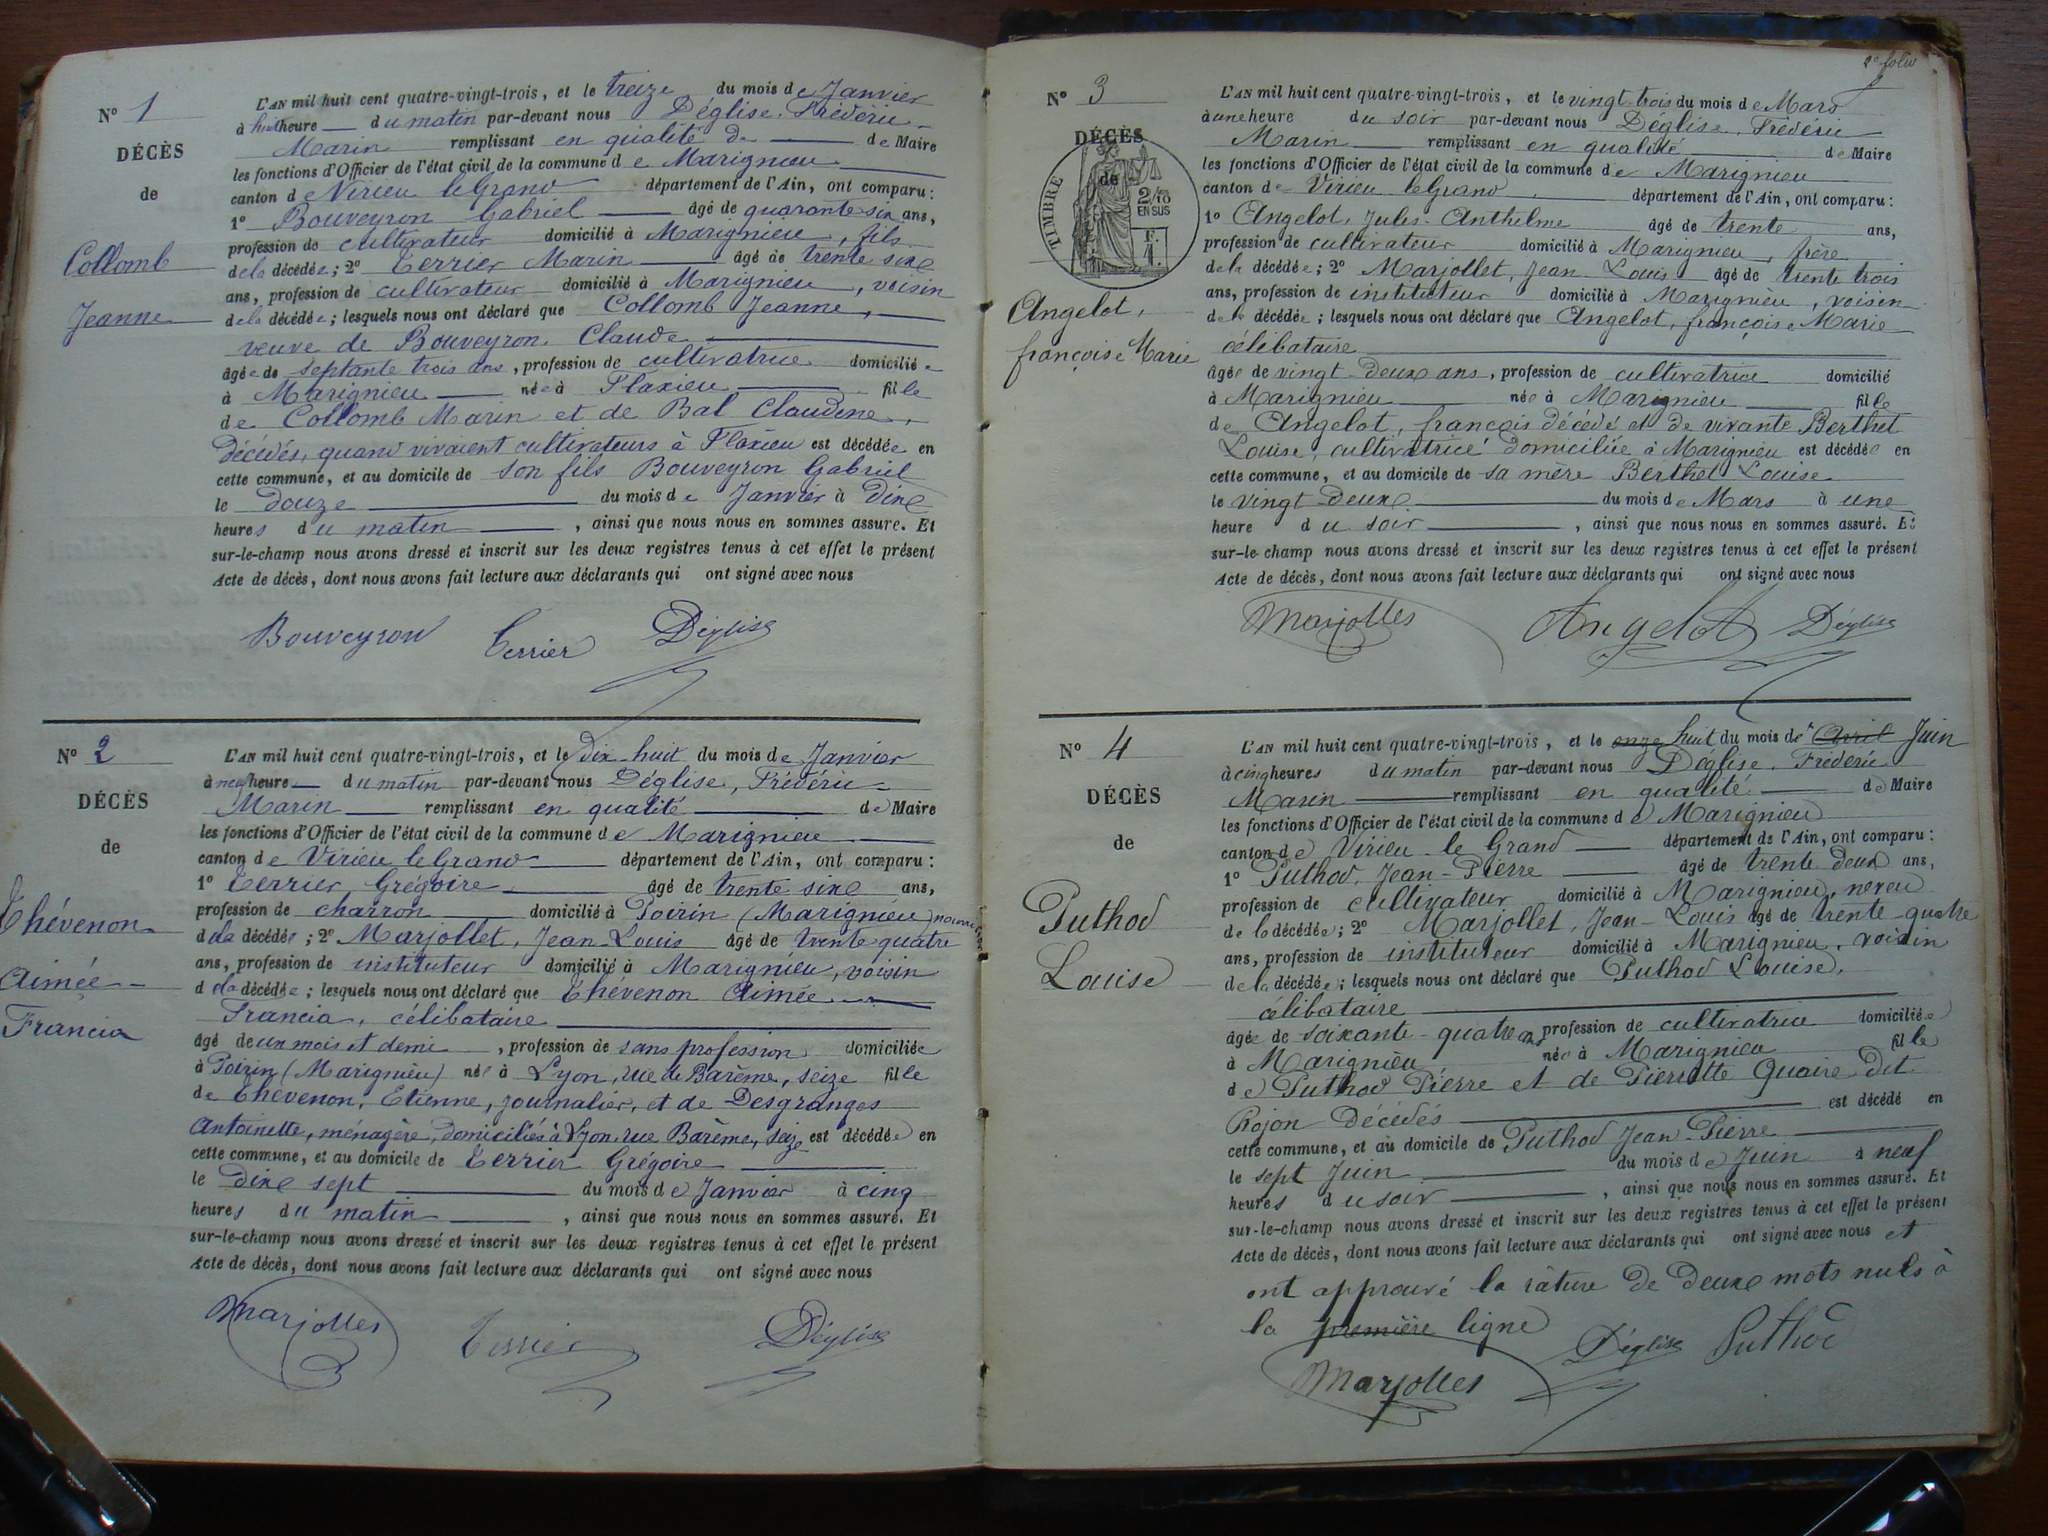 N° 1
DÉCÈS
de
Collomb
Jeanne
L'AN mil huit cent quatre-vingt-trois, et le treize du mois de Janvier
à huit heure du matin par-devant nous Déglise, Frédéric
Marin remplissant en qualité de de Maire
les fonctions d'Officier de l'état civil de la commune de Marignieu
canton de Virieu le Grand département de l'Ain, ont comparu :
1° Bouveyron Gabriel âgé de quarante six ans,
profession de cultivateur domicilié à Marignieu, fils
de la décédée ; 2° Terrier Marin âgé de trente sixe
ans, profession de cultivateur domicilié à Marignieu, voisin
de la décédée ; lesquels nous ont déclaré que Collomb Jeanne,
veuve de Bouveyron Claude
âgée de septante trois ans, profession de cultivatrice domiciliée
à Marignieu née à Flaxieu fille
de Collomb Marin et de Bal Claudine,
décédés, quand vivaient cultivateurs à Flaxieu est décédée en
cette commune, et au domicile de son fils Bouveyron Gabriel
le douze du mois de Janvier à dixe
heures du matin , ainsi que nous nous en sommes assuré. Et
sur-le-champ nous avons dressé et inscrit sur les deux registres tenus à cet effet le présent
Acte de décès, dont nous avons fait lecture aux déclarants qui ont signé avec nous
Bouveyron Terrier Déglise
N° 2
DÉCÈS
de
Thévenon
Aimée
Francia
L'AN mil huit cent quatre-vingt-trois, et le dix huit du mois de Janvier
à neuf heure du matin par-devant nous Déglise, Frédéric
Marin remplissant en qualité de Maire
les fonctions d'Officier de l'état civil de la commune de Marignieu
canton de Virieu le Grand département de l'Ain, ont comparu :
1° Terrier, Grégoire âgé de trente sixe ans,
profession de charron domicilié à Poirin (Marignieu)
de la décédée ; 2° Marjollet, Jean-Louis âgé de trente quatre
ans, profession de instituteur domicilié à Marignieu, voisin
de la décédée ; lesquels nous ont déclaré que Thévenon Aimée
Francia, célibataire
âgé de un mois et demi , profession de sans profession domiciliée
à Poirin (Marignieu) née à Lyon, rue de Barème, seize fille
de Thévenon, Etienne, journalier, et de Desgranges
Antoinette, ménagère, domiciliés à Lyon rue Barème, seize est décédée en
cette commune, et au domicile de Terrier Grégoire
le dixe sept du mois de Janvier à cinq
heures du matin , ainsi que nous nous en sommes assuré. Et
sur-le-champ nous avons dressé et inscrit sur les deux registres tenus à cet effet le présent
Acte de décès, dont nous avons fait lecture aux déclarants qui ont signé avec nous
Marjollet Terrier Déglise
2e folio
N° 3
DÉCÈS
de
TIMBRE
2/10
EN SUS
F.
Angelot,
françoise Marie
L'AN mil huit cent quatre-vingt-trois, et le vingt trois du mois de Mars
à une heure du soir par-devant nous Déglise, Frédéric
Marin remplissant en qualité de Maire
les fonctions d'Officier de l'état civil de la commune de Marignieu
canton de Virieu le Grand département de l'Ain, ont comparu :
1° Angelot, Jules-Anthelme âgé de trente ans,
profession de cultivateur domicilié à Marignieu, frère
de la décédée ; 2° Marjollet, Jean Louis âgé de trente trois
ans, profession de instituteur domicilié à Marignieu, voisin
de la décédée ; lesquels nous ont déclaré que Angelot, françoise Marie
célibataire
âgée de vingt deuxe ans, profession de cultivatrice domicilié
à Marignieu née à Marignieu fille
de Angelot, françois décédé et de vivante Berthet
Louise, cultivatrice domiciliée à Marignieu est décédée en
cette commune, et au domicile de sa mère Berthet Louise
le vingt deuxe du mois de Mars à une
heure du soir , ainsi que nous nous en sommes assuré. Et
sur-le-champ nous avons dressé et inscrit sur les deux registres tenus à cet effet le présent
Acte de décès, dont nous avons fait lecture aux déclarants qui ont signé avec nous
Marjollet Angelot Déglise
N° 4
DÉCÈS
de
Puthod
Louise
L'AN mil huit cent quatre-vingt-trois, et le onze huit du mois de Avril Juin
à cinq heures du matin par-devant nous Déglise, Frédéric
Marin remplissant en qualité de Maire
les fonctions d'Officier de l'état civil de la commune de Marignieu
canton de Virieu le Grand département de l'Ain, ont comparu :
1° Puthod, Jean-Pierre âgé de trente deux ans,
profession de cultivateur domicilié à Marignieu, neveu
de la décédée ; 2° Marjollet, Jean-Louis âgé de trente-quatre
ans, profession de instituteur domicilié à Marignieu, voisin
de la décédée ; lesquels nous ont déclaré que Puthod Louise,
célibataire
âgée de soixante-quatre ans, profession de cultivatrice domiciliée
à Marignieu née à Marignieu fille
de Puthod Pierre et de Pierrette Quaire dit
Rojon décédés est décédé en
cette commune, et au domicile de Puthod Jean-Pierre
le sept Juin du mois de Juin à neuf
heures du soir , ainsi que nous nous en sommes assuré. Et
sur-le-champ nous avons dressé et inscrit sur les deux registres tenus à cet effet le présent
Acte de décès, dont nous avons fait lecture aux déclarants qui ont signé avec nous et
ont approuvé la rature de deuxe mots nuls à
la première ligne
Marjollet Déglise Puthod